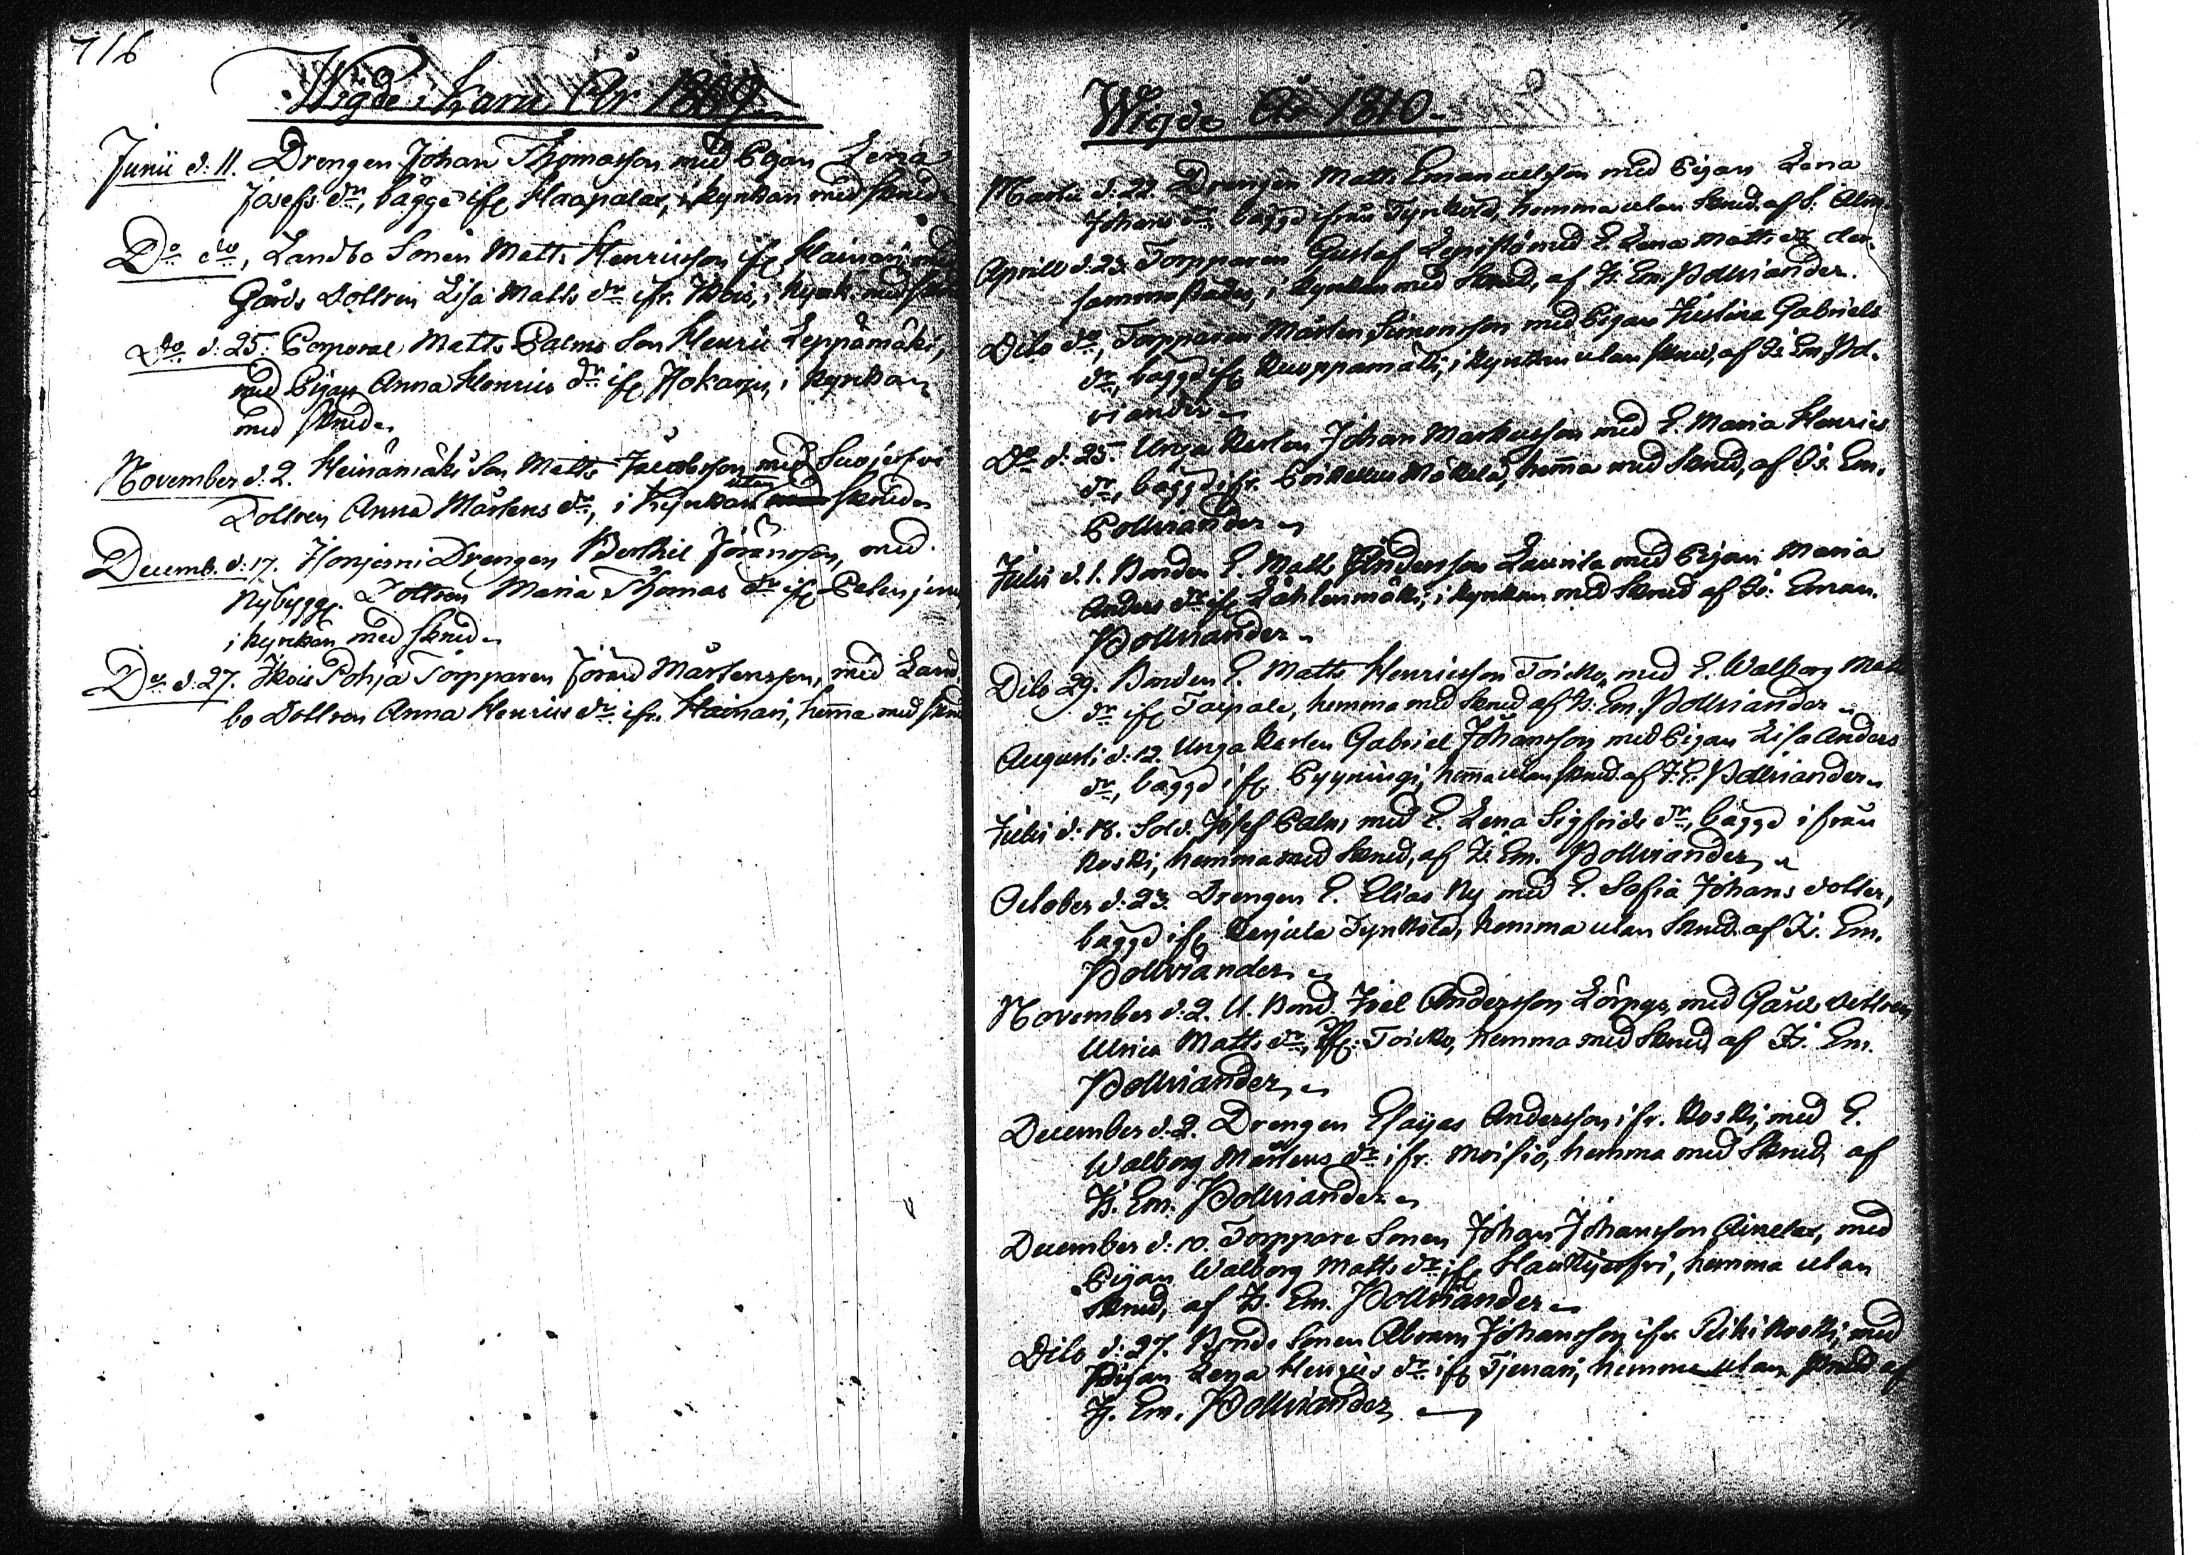 716
Wigde i Karu År 1809
Junii d: 11. Drengen Johan Thomasson med Pigan Lena
Josefs dr, bägge ifr Haapalax, i kyrkan med skrud
Do do, Landbo Sonen Matts Henricsson ifr Hainari med
Gårds Dottren Lisa Matts dr ifr. Ikois, i kyrk. med
do d: 25. Corporal Matts Palms Son Henric Leppämäki,
med Pigan Anna Henrics dr ifr Hokarju, i kyrkan
med skrud
November d. 2. Heinämäki Son Matts Jacobsson med Suojerfvi
Dottren Anna Mårtens dr, i kyrkan utan skrud
Decemb. d: 17. Honjerni Drengen Berthil Jöransson, med
Nybygg. Dottren Maria Thomas dr ifr
i kyrkan med skrud
Do d: 27. Ikois Pohja Torpparen Jöran Mårtensson, med Land
bo Dottren Anna Henrics dr ifr. Hainari, hema med
Wigde År 1810.
Martii d: 22. Drengen Matts Emanuelsson med Pigan Lena
Johans dr bägge ifrån Tynkölä, hemma utan skrud. af S.
Aprill d: 23. Torpparen Gustaf Lepistö med P. Lena Matts dr der
sammastädes, i kyrkan med skrud, af Kr. Em. Pollviander.
Dito do, Torpparen Mårten Simonsson med Pigan Kristina Gabriels
dr, bägge ifr Kuoppamäki, i kyrkan utan skrud, af Kr Em. Pol-
viander
Do d: 25. Unga Karlen Johan Markusson med P. Maria Henrics
dr, bägge ifr. Mäkelä, hema med skrud, af Kr. Em.
Pollviander
Julii d. 1. Bonden E. Matts Andersson Laurila med Pigan Maria
Anders dr ifr Lähtenmäki, i kyrkan med skrud af Kr. Eman.
Pollviander
Dito 29. Bonden E. Matts Henricsson Toicko, med P. Walborg Matts
dr ifr Taipale, hemma med skrud af Kr. Em. Pollviander
Augusti d: 12. Unga Karlen Gabriel Johansson med Pigan Lisa Anders
dr, bägge ifr Pyyningi, hema utan skrud. af K. E. Pollviander
Julii d: 18. Sold. Josef Palm, med P. Lena Sigfrids dr, bägge ifrån
Koski, hemma med skrud, af Kr Em. Pollviander
October d: 23. Drengen E. Elias Ny med P. Sofia Johans dotter,
bägge ifr Karjula Tynkölä, hemma utan skrud. af Kr. Em.
Pollviander
November d: 2. U. Bond. Joel Andersson Lörpys, med Gårds Dottren
Ulrica Matts dr, ifr: Toicko, hemma med skrud af Kr. Em.
Pollviander
December d. 2. Drengen Esaijas Andersson ifr. Koski, med P.
Walborg Mårtens dr ifr. Moisio, hemma med skrud, af
Kr. Em. Pollviander
December d: 10. Torppare Sonen Johan Johansson Airelax, med
Pigan Walborg Matts dr ifr Haukijerfvi, hemma utan
skrud, af Kr. Em. Pollviander
Dito d: 27. Bonde Sonen Abram Johansson ifr. Pitkikoski, med
Pigan Lena Henrics dr ifr Tjenari, hemma utan skrud af
Kr. Em. Pollviander